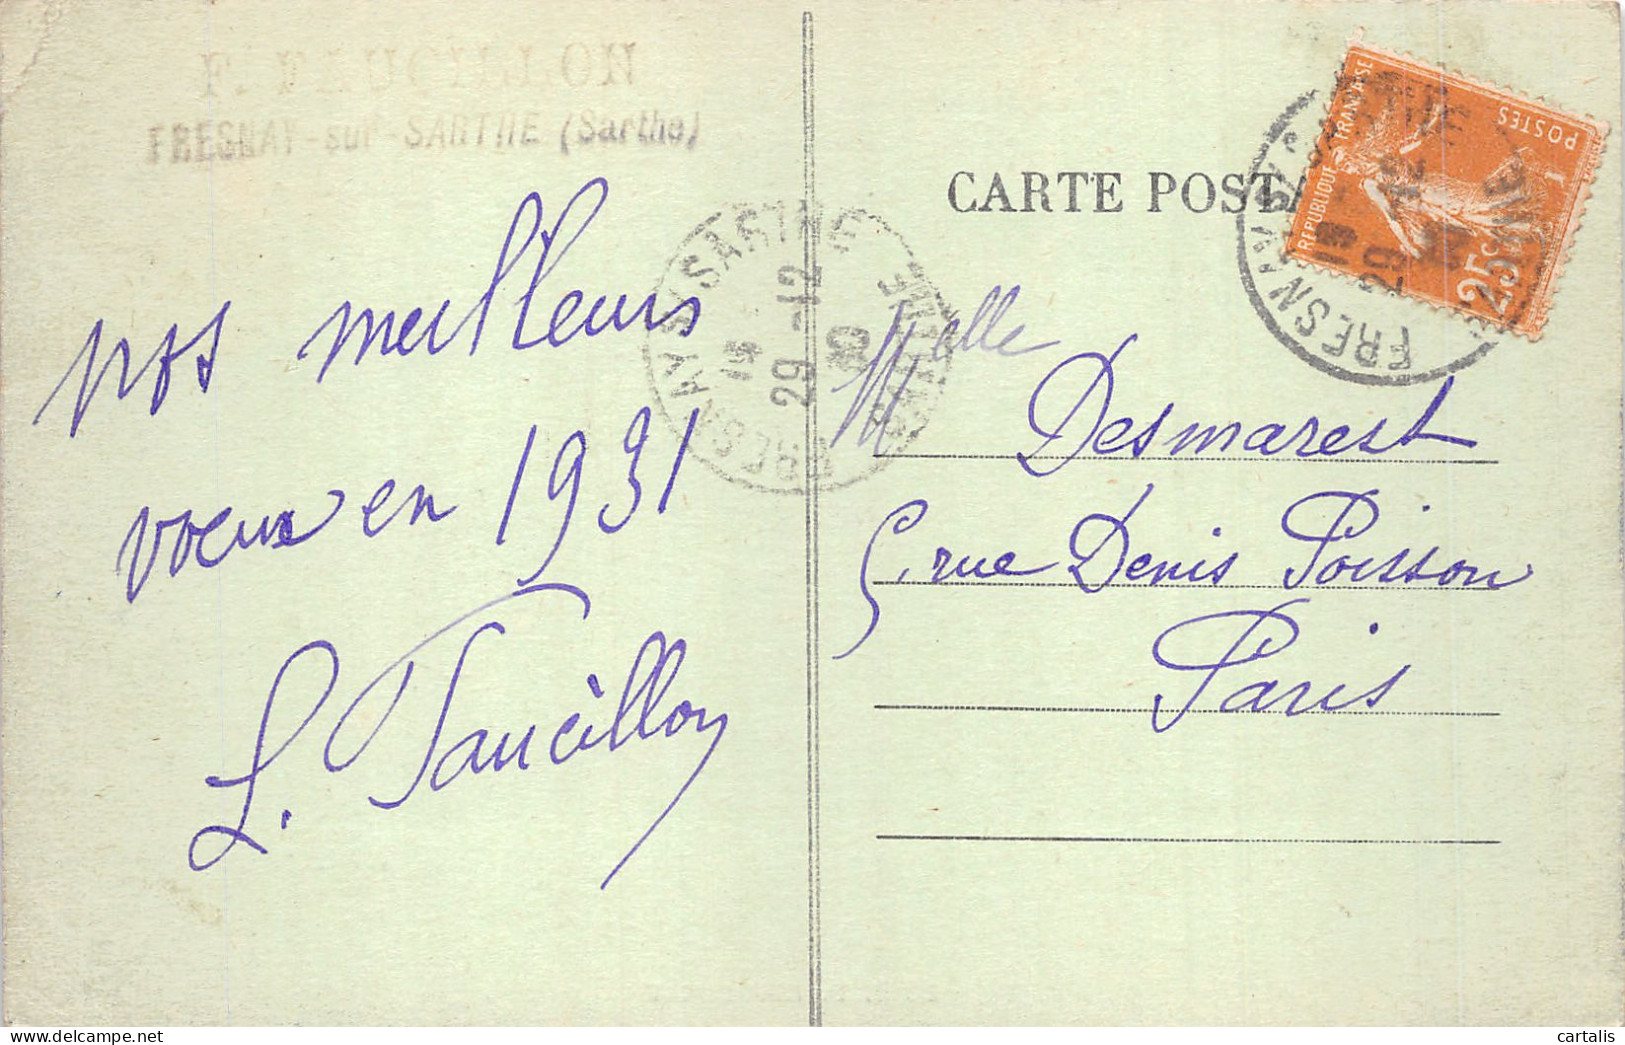 F. FAUCILLON
FRESNAY-sur-SARTHE (Sarthe)
nos meilleurs
voeux en 1931
L. Faucillon
FRESNAY S/ SARTHE
SARTHE
29 -12
30
CARTE POSTA
REPUBLIQUE FRANÇAISE
POSTES
25c
FRESNAY S/ SARTHE
29 12
Melle Desmarest
5, rue Denis Poisson
Paris
cartalis